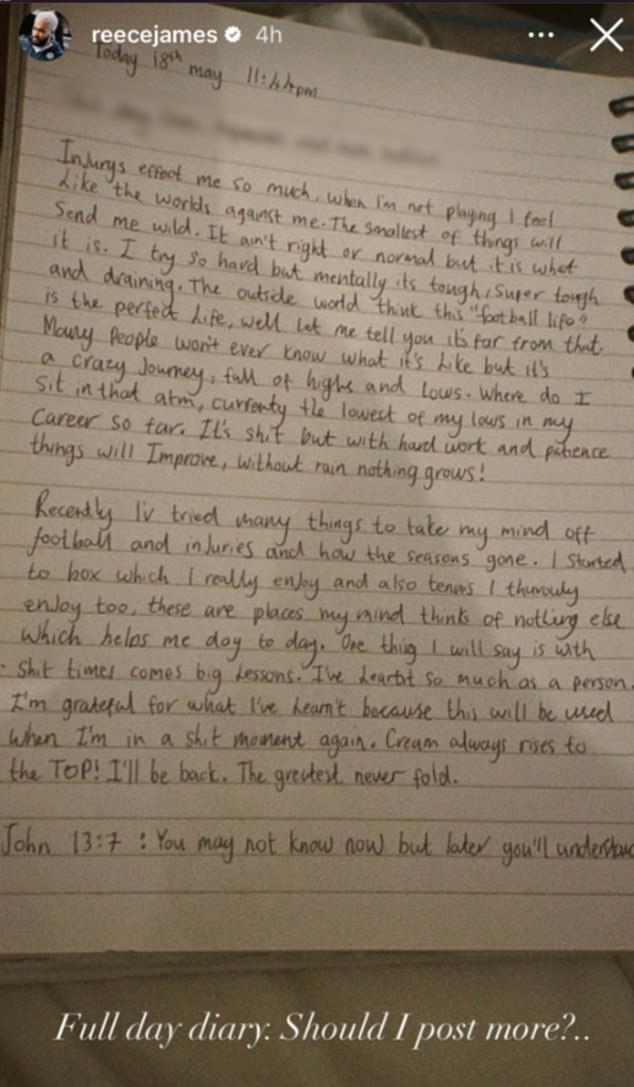 reecejames 4h
Today 18th may 11:44pm
Injurys effect me so much, when I'm not playing I feel
Like the worlds against me. The smallest of things will
Send me wild. It ain't right or normal but it is what
it is. I try so hard but mentally its tough, Super tough
and draining. The outside world think this "football life"
is the perfect life, well let me tell you it's far from that.
Many People won't ever know what it's like but it's
a crazy Journey, full of highs and lows. Where do I
Sit in that atm, currenty the lowest of my lows in my
Career so far. It's shit but with hard work and patience
things will Improve, without rain nothing grows!
Recently Iv tried many things to take my mind off
football and injuries and how the seasons gone. I started
to box which I really enjoy and also tennis I thurouly
enjoy too, these are places my mind thinks of nothing else
which helps me day to day. One thing I will say is with
Shit times comes big lessons. I've learnt so much as a person.
I'm grateful for what I've learn't because this will be used
when I'm in a shit moment again. Cream always rises to
the TOP! I'll be back. The greatest never fold.
John 13:7 : You may not know now but later you'll understand
Full day diary. Should I post more?..